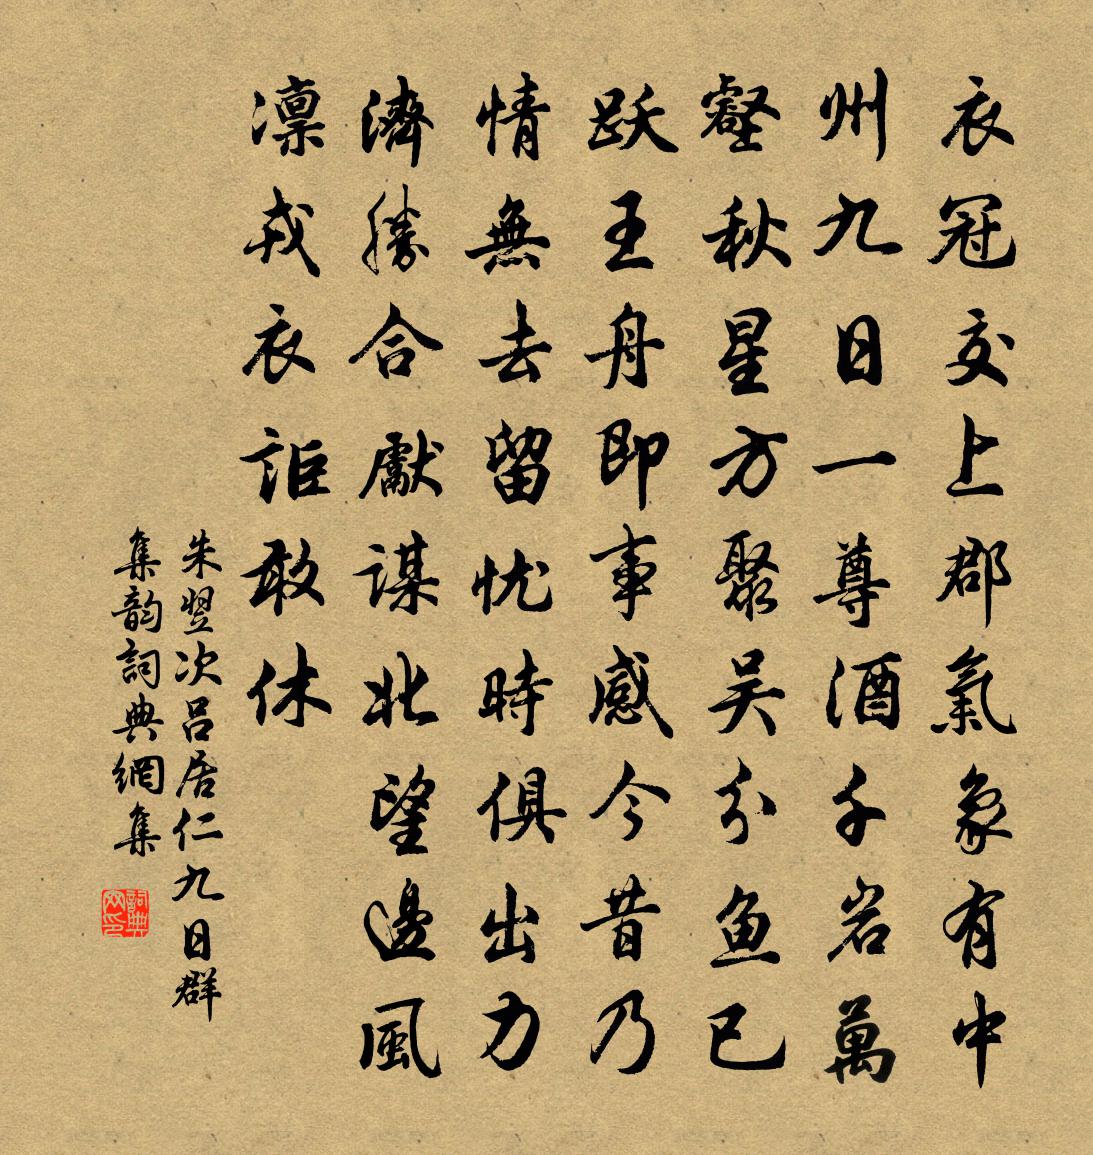 衣冠交上郡氣象有中
州九日一尊酒千岩萬
壑秋星方聚吴分鱼已
跃王舟即事感今昔乃
情無去留忧時俱出力
濟勝合獻謀北望邊風
凛戎衣詎敢休
朱翌次吕居仁九日群
集韵詞典網集
詞典网印